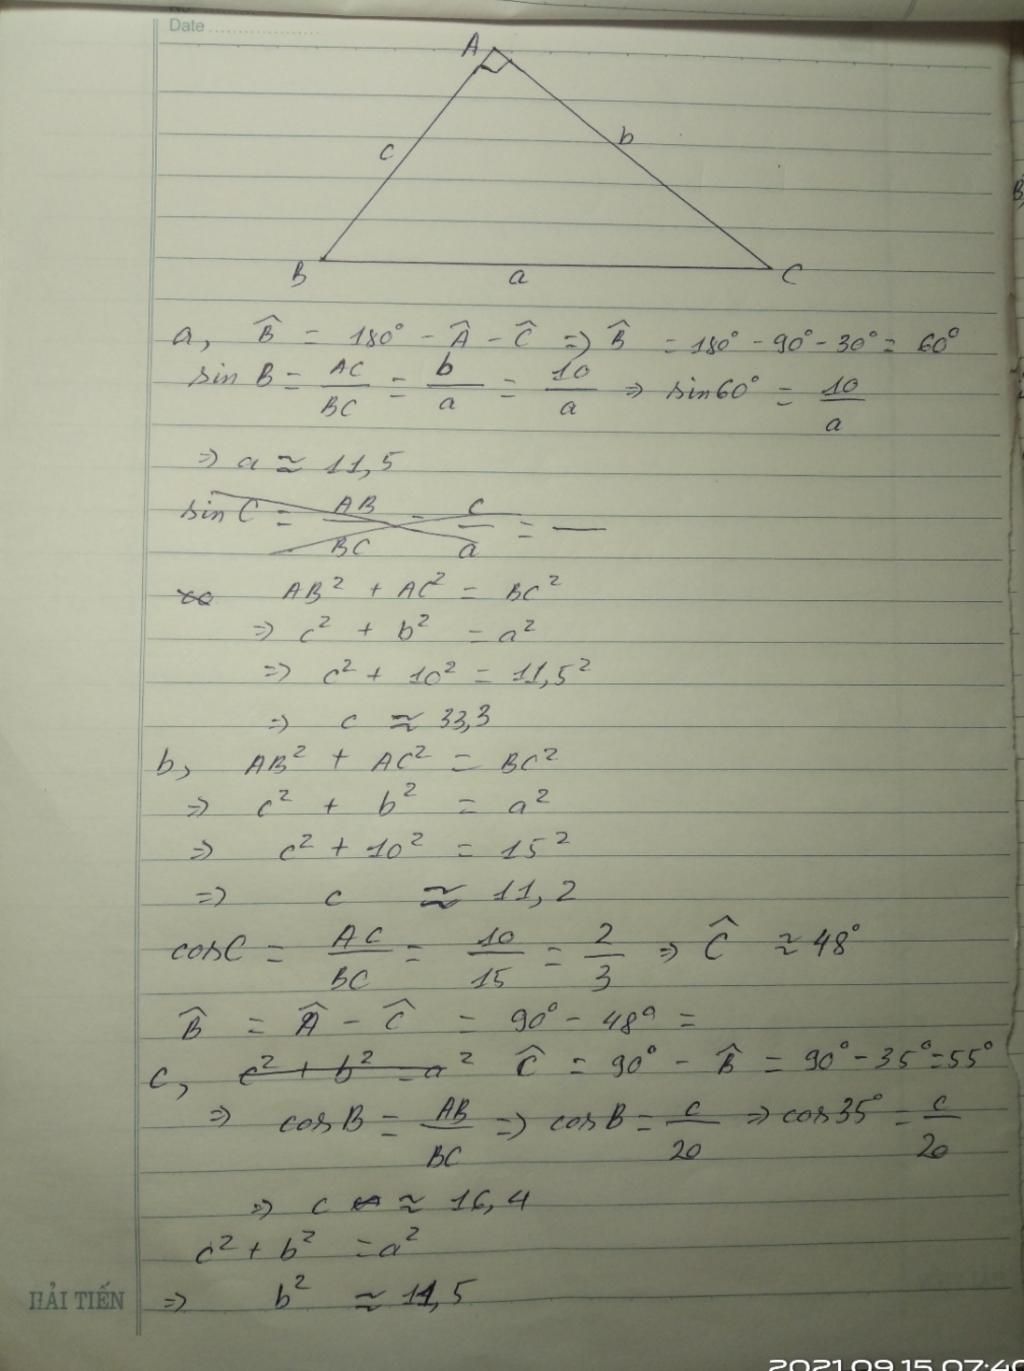 No.
Date
A
c
b
B
a
C
a, B̂ = 180° - Â - Ĉ => B̂ = 180° - 90° - 30° = 60°
sin B = AC/BC = b/a = 10/a => sin60° = 10/a
=> a ≈ 11,5
sin C = AB/BC = c/a =
AB² + AC² = BC²
=> c² + b² = a²
=> c² + 10² = 11,5²
=> c ≈ 33,3
b, AB² + AC² = BC²
=> c² + b² = a²
=> c² + 10² = 15²
=> c ≈ 11,2
cosC = AC/BC = 10/15 = 2/3 => Ĉ ≈ 48°
B̂ = Â - Ĉ = 90° - 48° =
c, c² + b² = a² Ĉ = 90° - B̂ = 90° - 35° = 55°
=> cosB = AB/BC => cosB = c/20 => cos35° = c/20
=> c ≈ 16,4
c² + b² = a²
=> b² ≈ 11,5
HẢI TIẾN